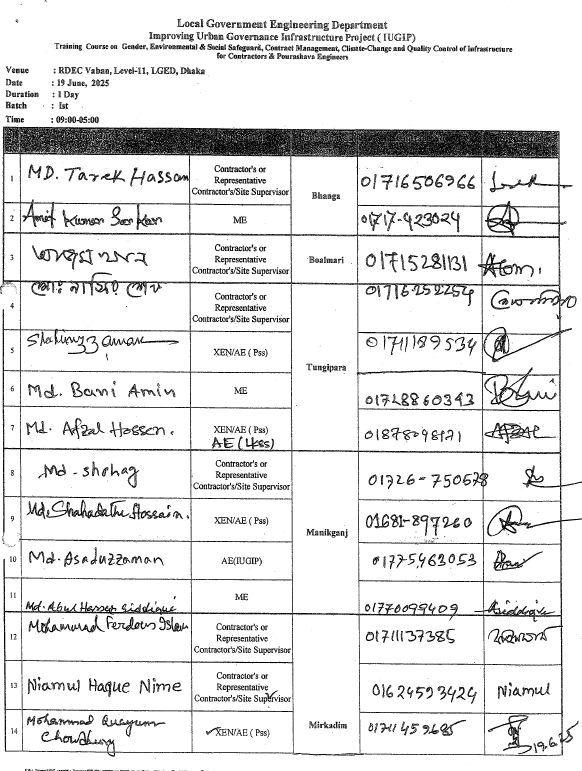 Local Government Engineering Department
Improving Urban Governance Infrastructure Project ( IUGIP)
Training Course on Gender, Environmental & Social Safeguard, Contract Management, Climate-Change and Quality Control of infrastructure
for Contractors & Pourashava Engineers
Venue : RDEC Vaban, Level-11, LGED, Dhaka
Date : 19 June, 2025
Duration : 1 Day
Batch : Ist
Time : 09:00-05:00
1 MD. Tarek Hassan Contractor's or Representative Contractor's/Site Supervisor Bhanga 01716506966
2 Amit Kumar Sarkar ME 01717-423024
3 Contractor's or Representative Contractor's/Site Supervisor Boalmari 01715281131 Alom.
4 মোঃ নাসির শেখ Contractor's or Representative Contractor's/Site Supervisor Tungipara 01716-252254
5 Shahinuzzaman XEN/AE ( Pss) 01711189534
6 Md. Bani Amin ME 01728860343
7 Md. Afzal Hossen. XEN/AE ( Pss) AE (Ukss) 01878098121 Afzal
8 Md - shohag Contractor's or Representative Contractor's/Site Supervisor Manikganj 01726-750678
9 Md. Shahadath Hossain. XEN/AE ( Pss) 01681-897260
10 Md. Asaduzzaman AE(IUGIP) 01775463053
11 Md. Abul Hassen Siddiqui ME 01770099409 Siddiqui
12 Mohammad Ferdous Islam Contractor's or Representative Contractor's/Site Supervisor Mirkadim 01711137385
13 Niamul Haque Nime Contractor's or Representative Contractor's/Site Supervisor 01624593424 Niamul
14 Mohammad Quayum Chowdhury XEN/AE ( Pss) 01711459685 19.6.25